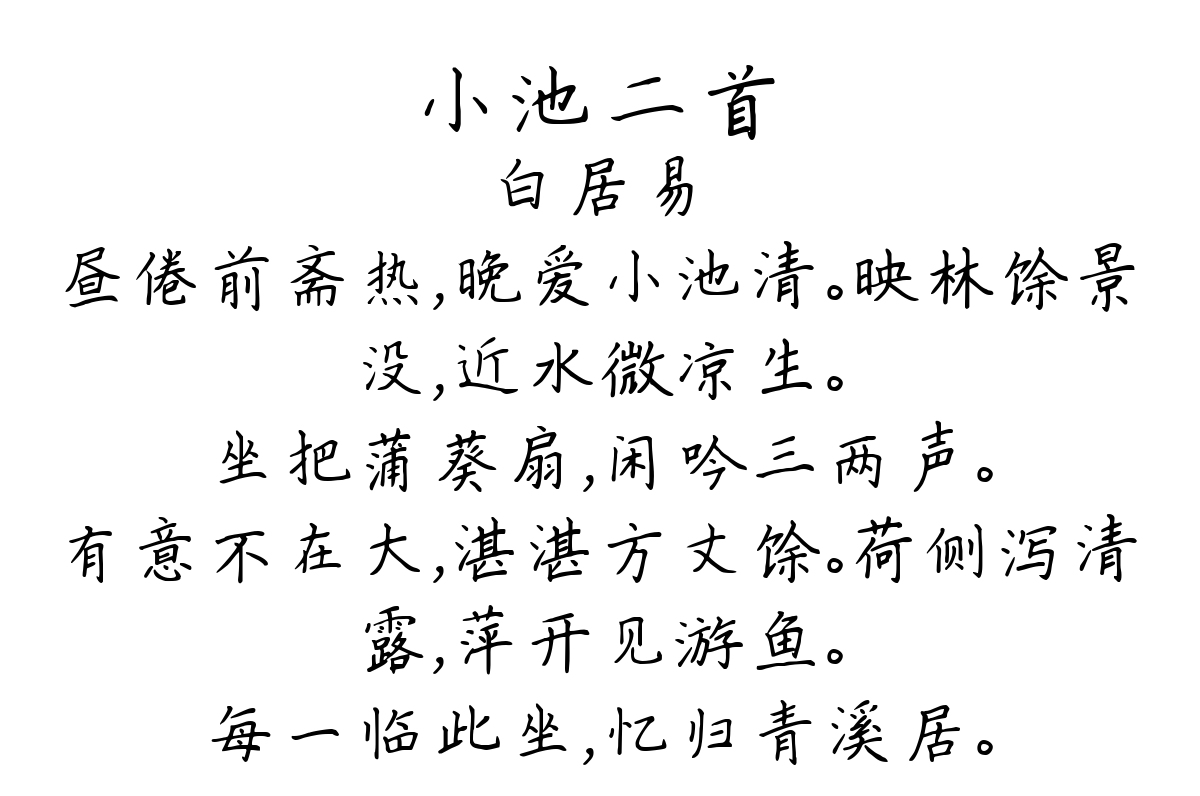 小池二首
白居易
昼倦前斋热,晚爱小池清。映林馀景
没,近水微凉生。
坐把蒲葵扇,闲吟三两声。
有意不在大,湛湛方丈馀。荷侧泻清
露,萍开见游鱼。
每一临此坐,忆归青溪居。